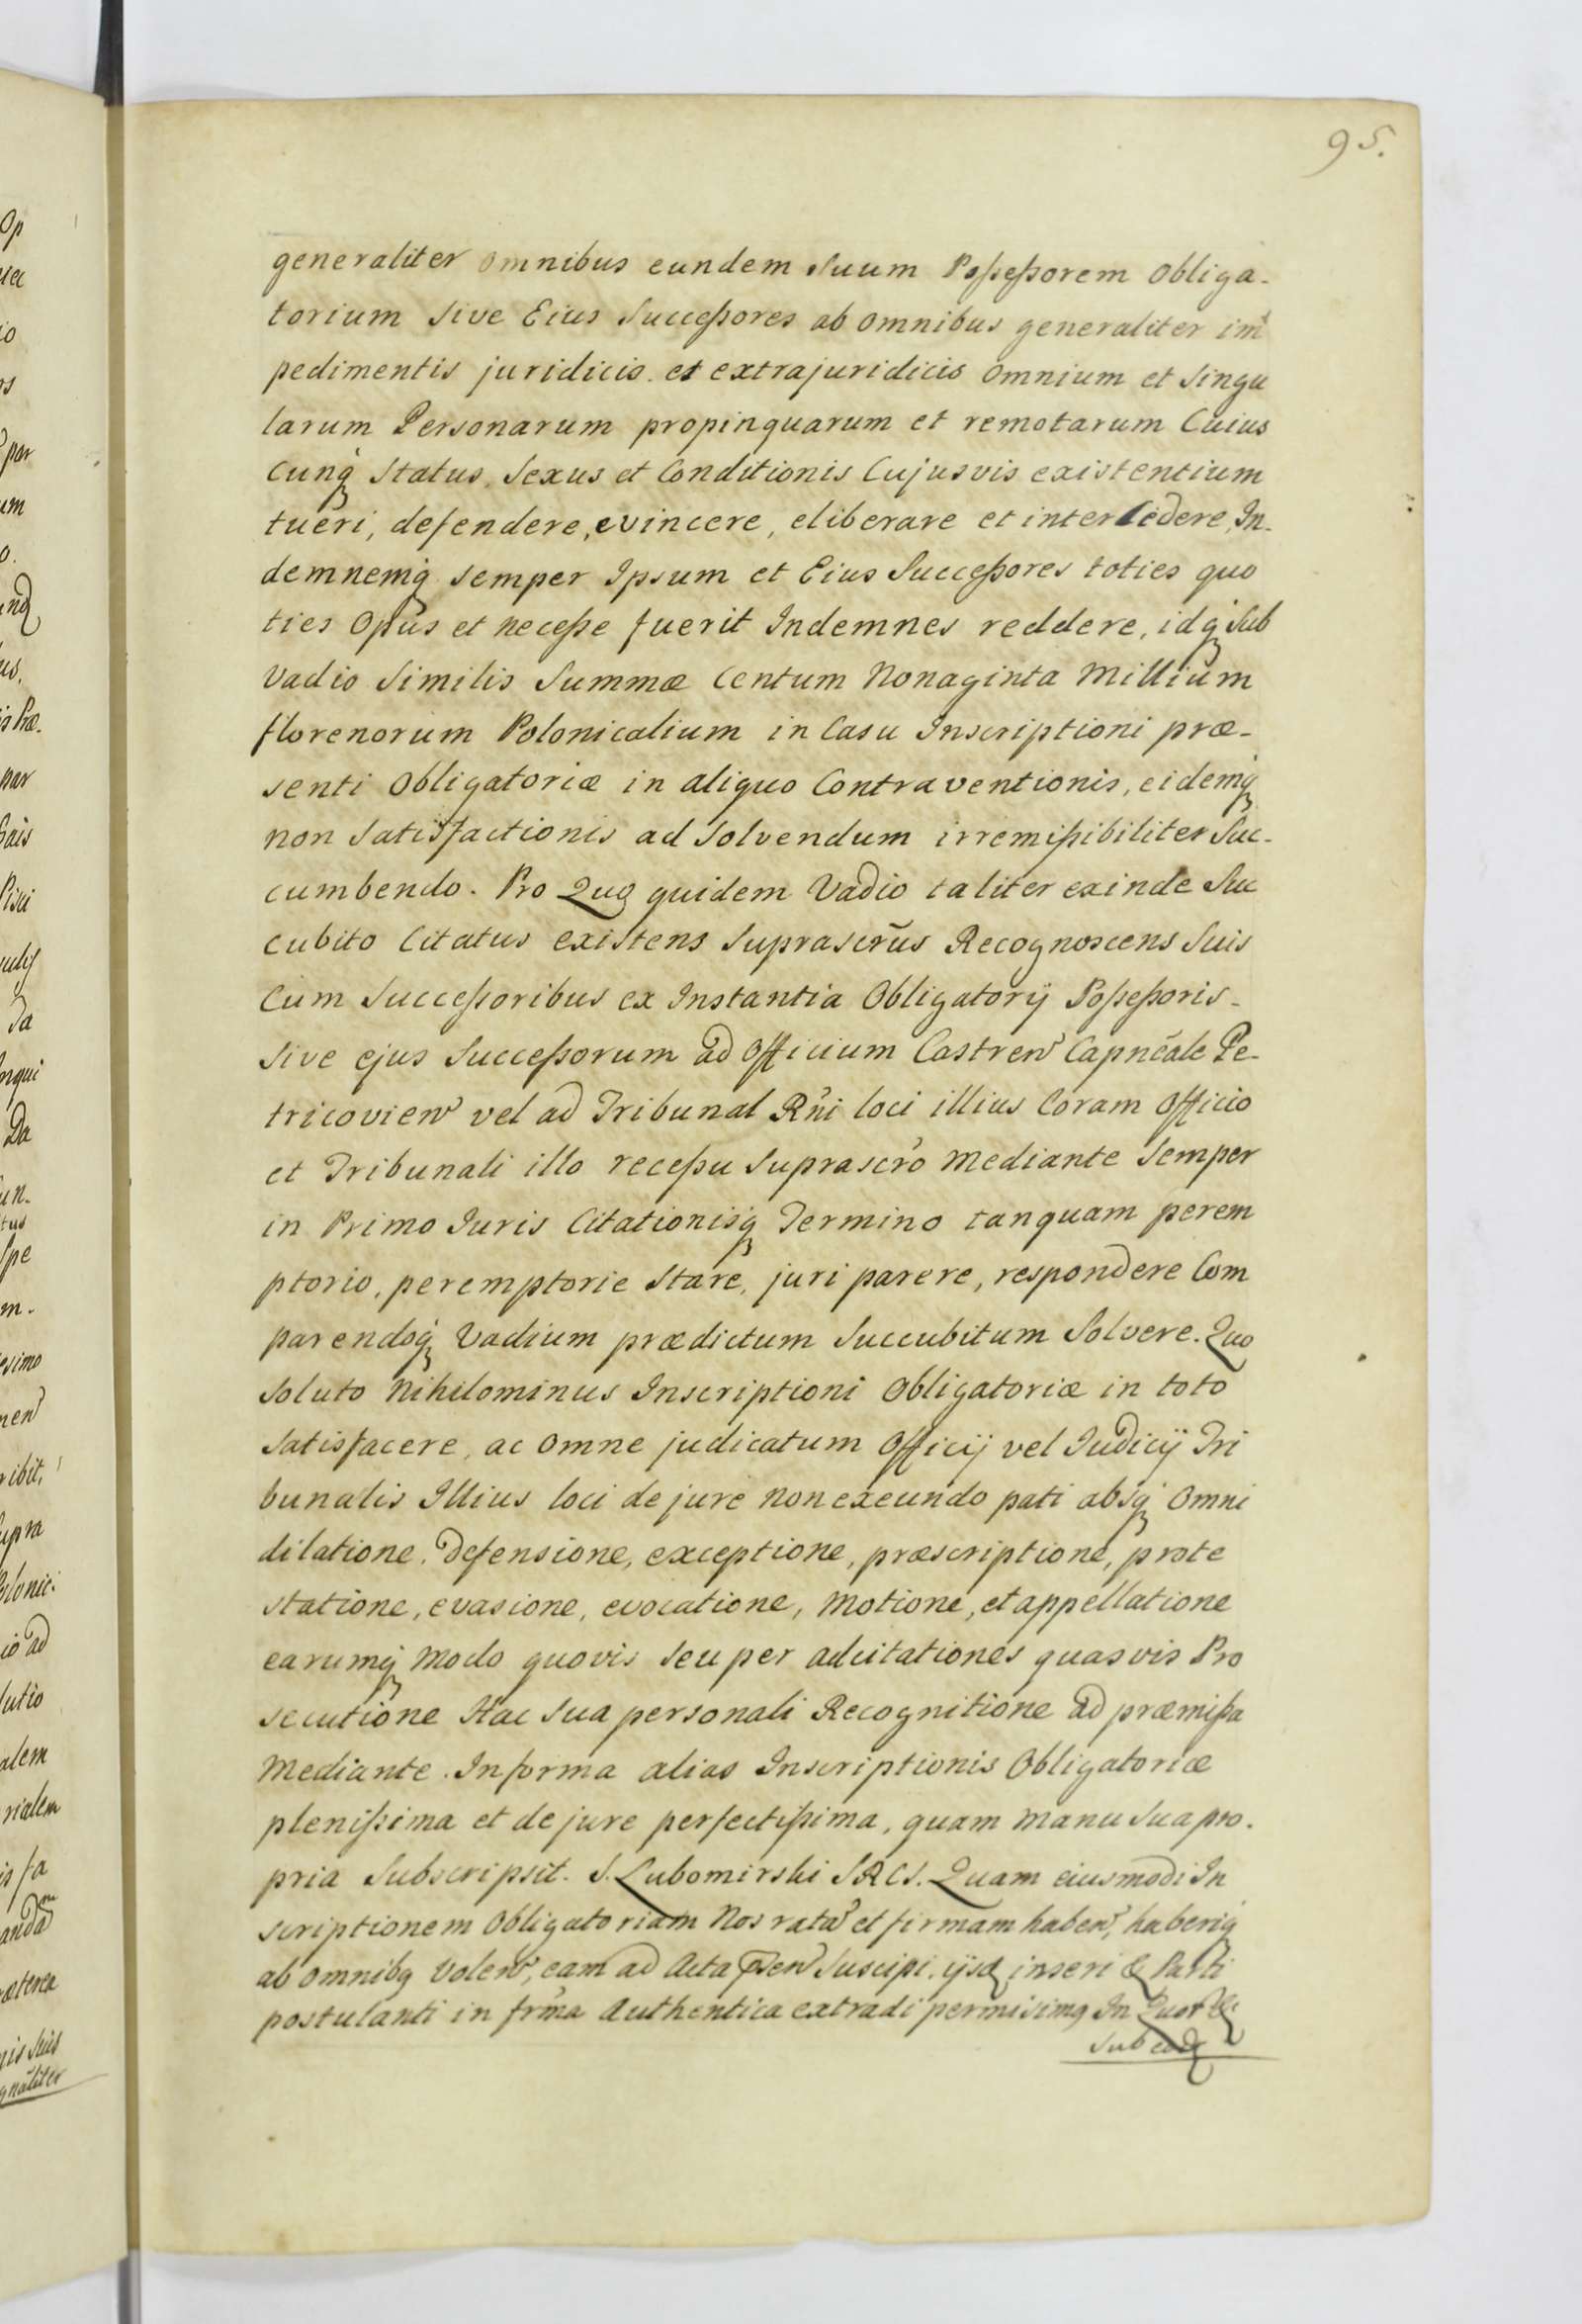 95.
generaliter omnibus eundem suum Possessorem obliga-
torium sive Eius Successores ab omnibus generaliter im
pedimentis juridicis et extrajuridicis omnium et singu
larum Personarum propinquarum et remotarum Cuius
cunq Status, Sexus et Conditionis Cujusvis existentium
tueri, defendere, evincere, eliberare et intercedere, In-
demnemq semper Ipsum et Eius Successores toties quo
ties Opus et necesse fuerit Indemnes reddere, idq sub
Vadio Similis Summæ Centum Nonaginta Millium
florenorum Polonicalium in Casu Inscriptioni præ-
senti Obligatoriæ in aliquo Contraventionis, eidemq
non Satisfactionis ad solvendum irremissibiliter Suc-
cumbendo. Pro Quo quidem Vadio taliter exinde Suc
cubito Citatus existens suprascrūs Recognoscens Suis
Cum Successoribus ex Instantia Obligatorij Possessoris-
sive ejus Successorum ad Officium Castren Capnēale Pe-
tricovien vel ad Tribunal Rni loci illius Coram Officio
et Tribunali illo recessu suprascro mediante semper
in Primo Iuris Citationisq Termino tanquam perem
ptorio, peremptorie stare, juri parere, respondere Com
parendoq Vadium prædictum Succubitum Solvere. Quo
soluto Nihilominus Inscriptioni Obligatoriæ in toto
satisfacere, ac omne judicatum Officij vel Iudicij Tri
bunalis Illius loci de jure non exeundo pati absq Omni
dilatione, defensione, exceptione, præscriptione, prote
statione, evasione, evocatione, motione, et appellatione
earumq modo quovis seu per adcitationes quasvis Pro
secutione Hac sua personali Recognitione ad præmissa
mediante. In forma alias Inscriptionis Obligatoriæ
plenissima et de jure perfectissima, quam manu sua pro.
pria Subscripsit. S. Lubomirski SRCS. Quam eiusmodi In
scriptionem Obligatoriam Nos rata et firmam haben, haberiq
ab omnibq Volen, eam ad Acta pñen Suscipi, ijsq inseri & Parti
postulanti in frma Authentica extradi permisimq In Quor &